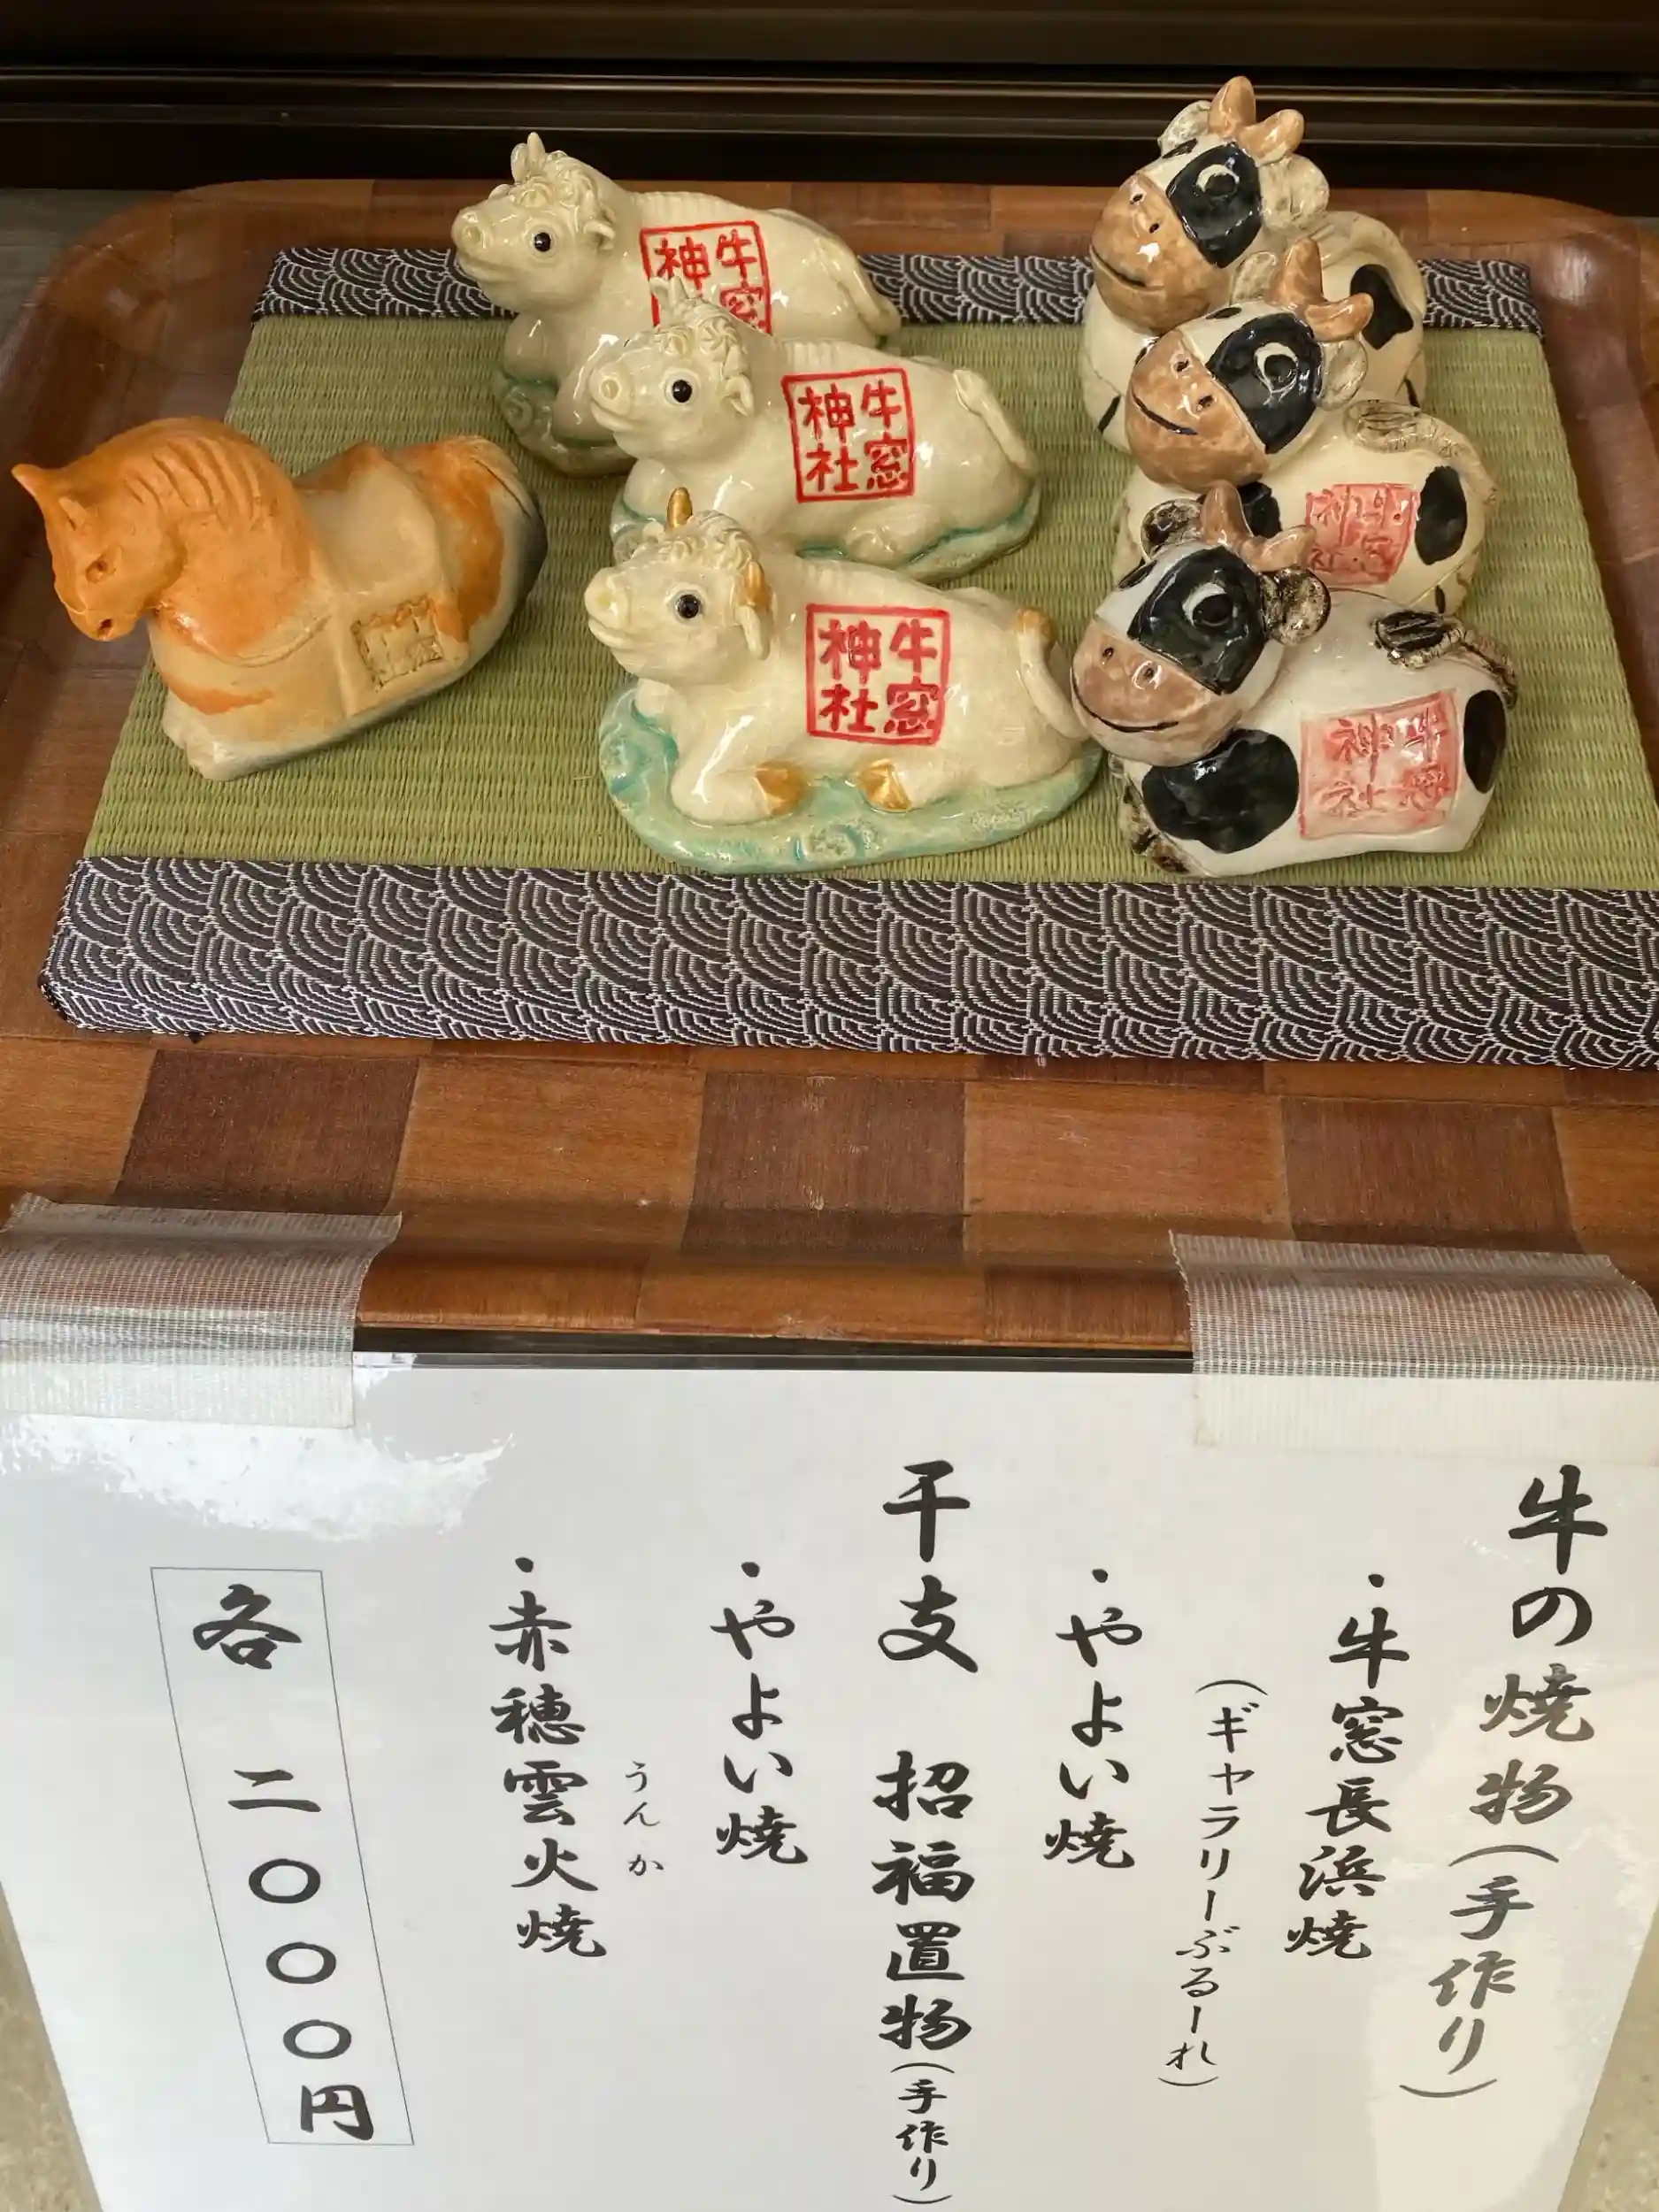 牛窓
神社
牛窓
神社
牛窓
神社
牛窓
神社
牛窓
神社
牛の焼物(手作り)
・牛窓長浜焼
(ギャラリーぶるーれ)
・やよい焼
干支 招福置物(手作り)
・やよい焼
うんか
・赤穂雲火焼
各 二〇〇〇円